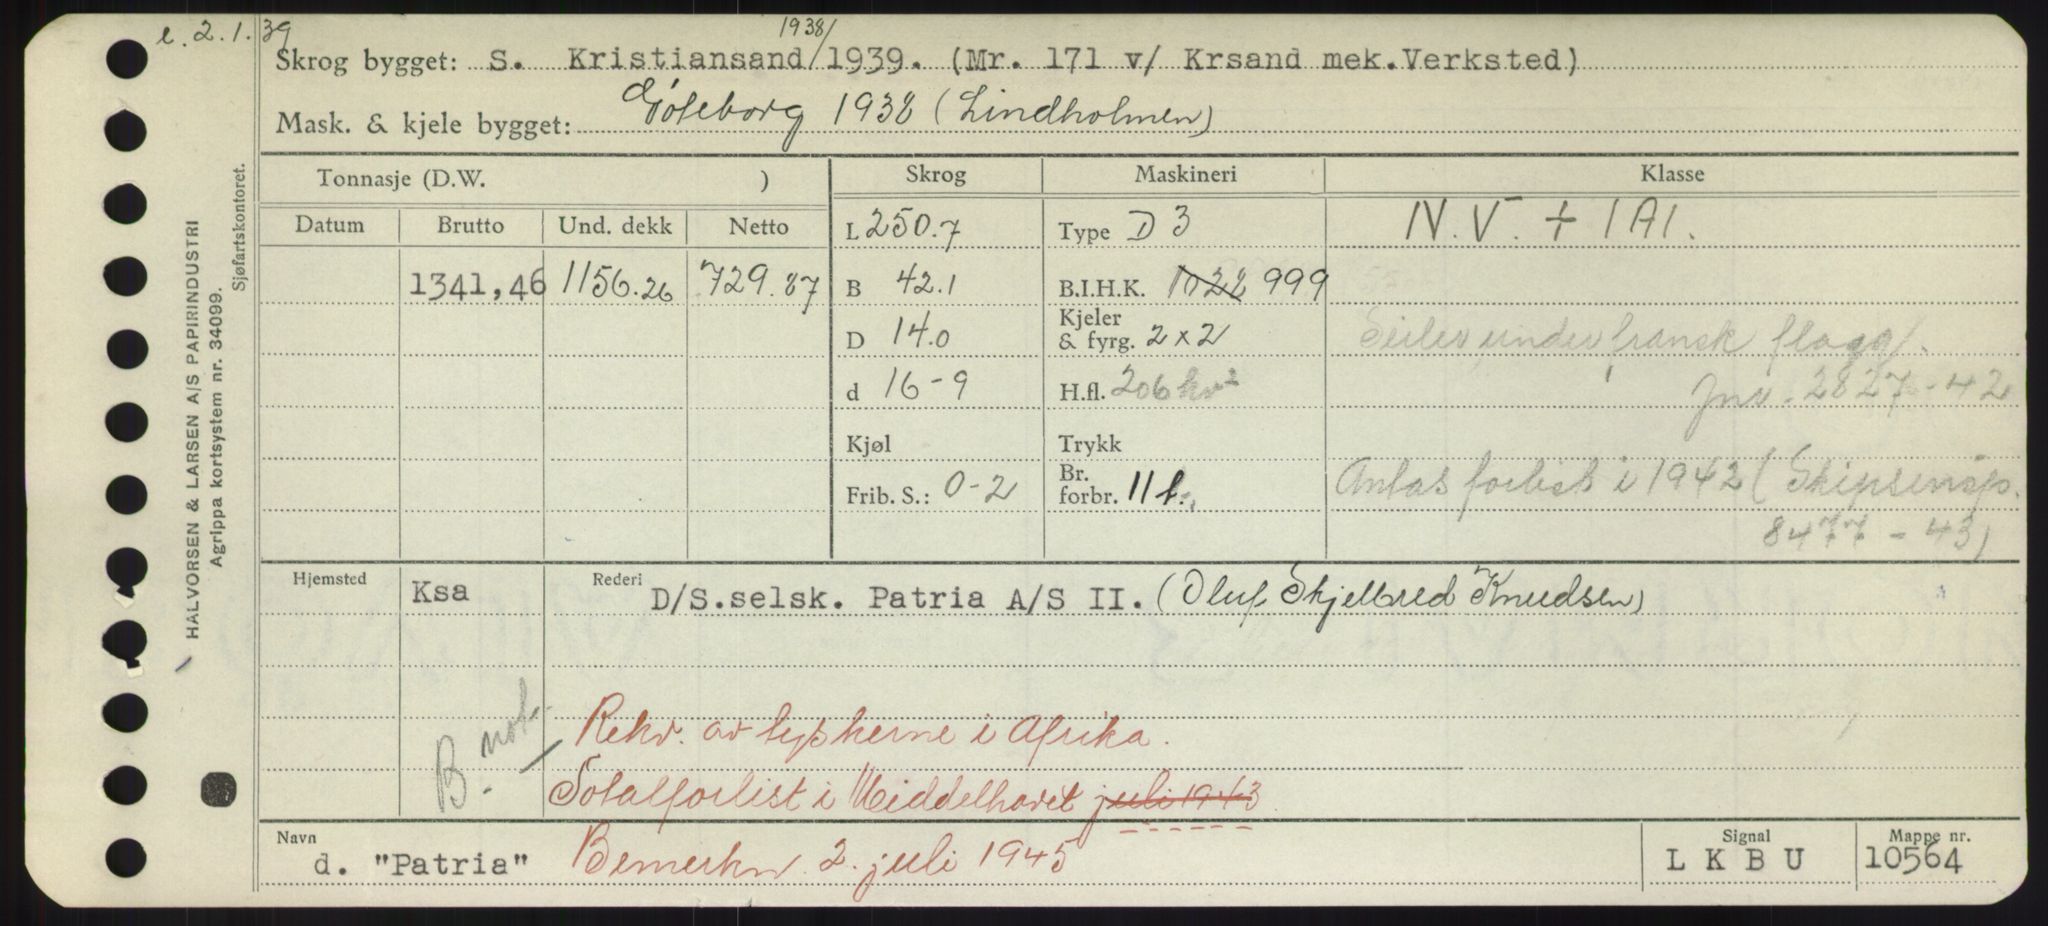 e. 2.1.39
1938/
Skrog bygget: S. Kristiansand/1939. (Mr. 171 v/ Krsand mek.Verksted)
Mask. & kjele bygget: Göteborg 1938 (Lindholmen)
Tonnasje (D.W. ) Skrog Maskineri Klasse
Datum Brutto Und. dekk Netto L 250.7 Type D 3 N.V. + 1A1.
1341,46 1156.26 729.87 B 42.1 B.I.H.K. 1022 999
D 14.0 Kjeler & fyrg. 2 x 2 Seiler under fransk flagg.
d 16-9 H.fl. 206 kv² Jnr. 2827-42
Kjøl Trykk
Frib. S.: 0-2 Br. forbr. 11 t. Antas forlist i 1942 (Skipsinsp.
8477-43)
Hjemsted Ksa Rederi D/S.selsk. Patria A/S II. (Oluf Skjelbred Knudsen)
B. not.
Rekv. av tyskerne i Afrika.
Totalforlist i Middelhavet juli 1943
Navn d. "Patria" Bemerkn. 2. juli 1945 Signal L K B U Mappe nr. 10564
HALVORSEN & LARSEN A/S PAPIRINDUSTRI
Agrippa kortsystem nr. 34099.
Sjøfartskontoret.